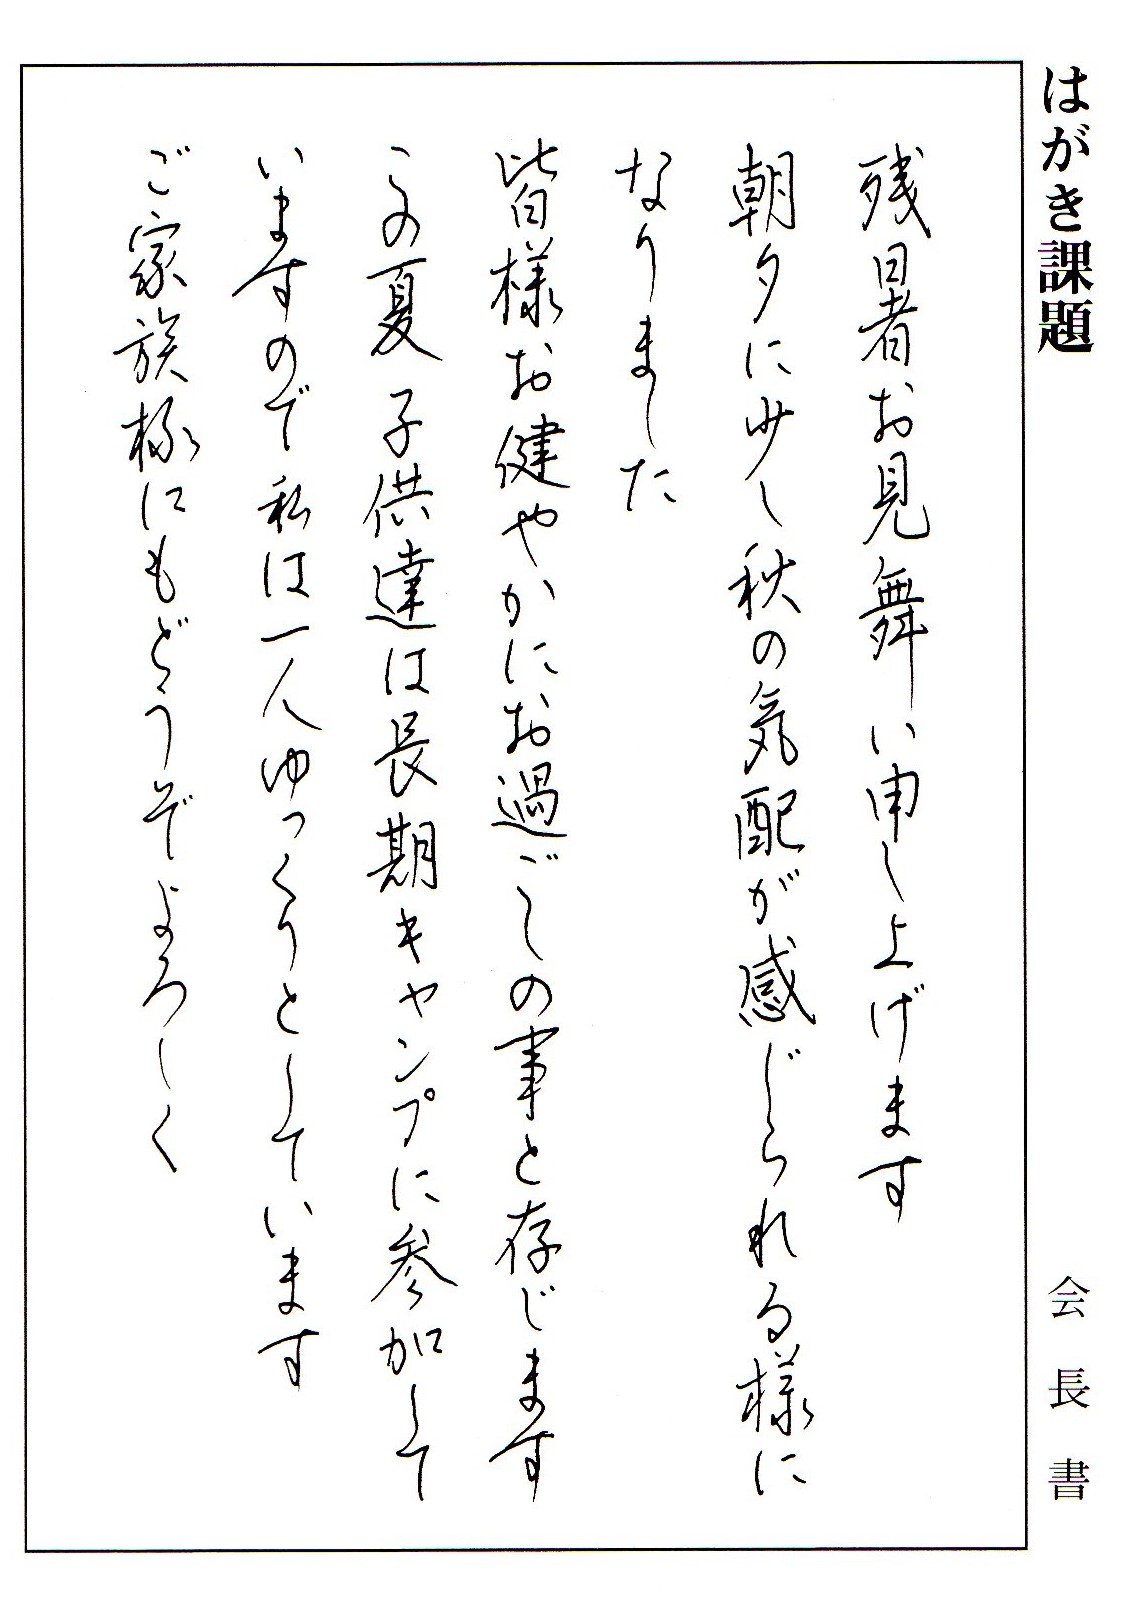 はがき課題
会長書
残暑お見舞い申し上げます
朝夕に少し秋の気配が感じられる様に
なりました
皆様お健やかにお過ごしの事と存じます
この夏子供達は長期キャンプに参加して
いますので私は一人ゆっくりとしています
ご家族様にもどうぞよろしく